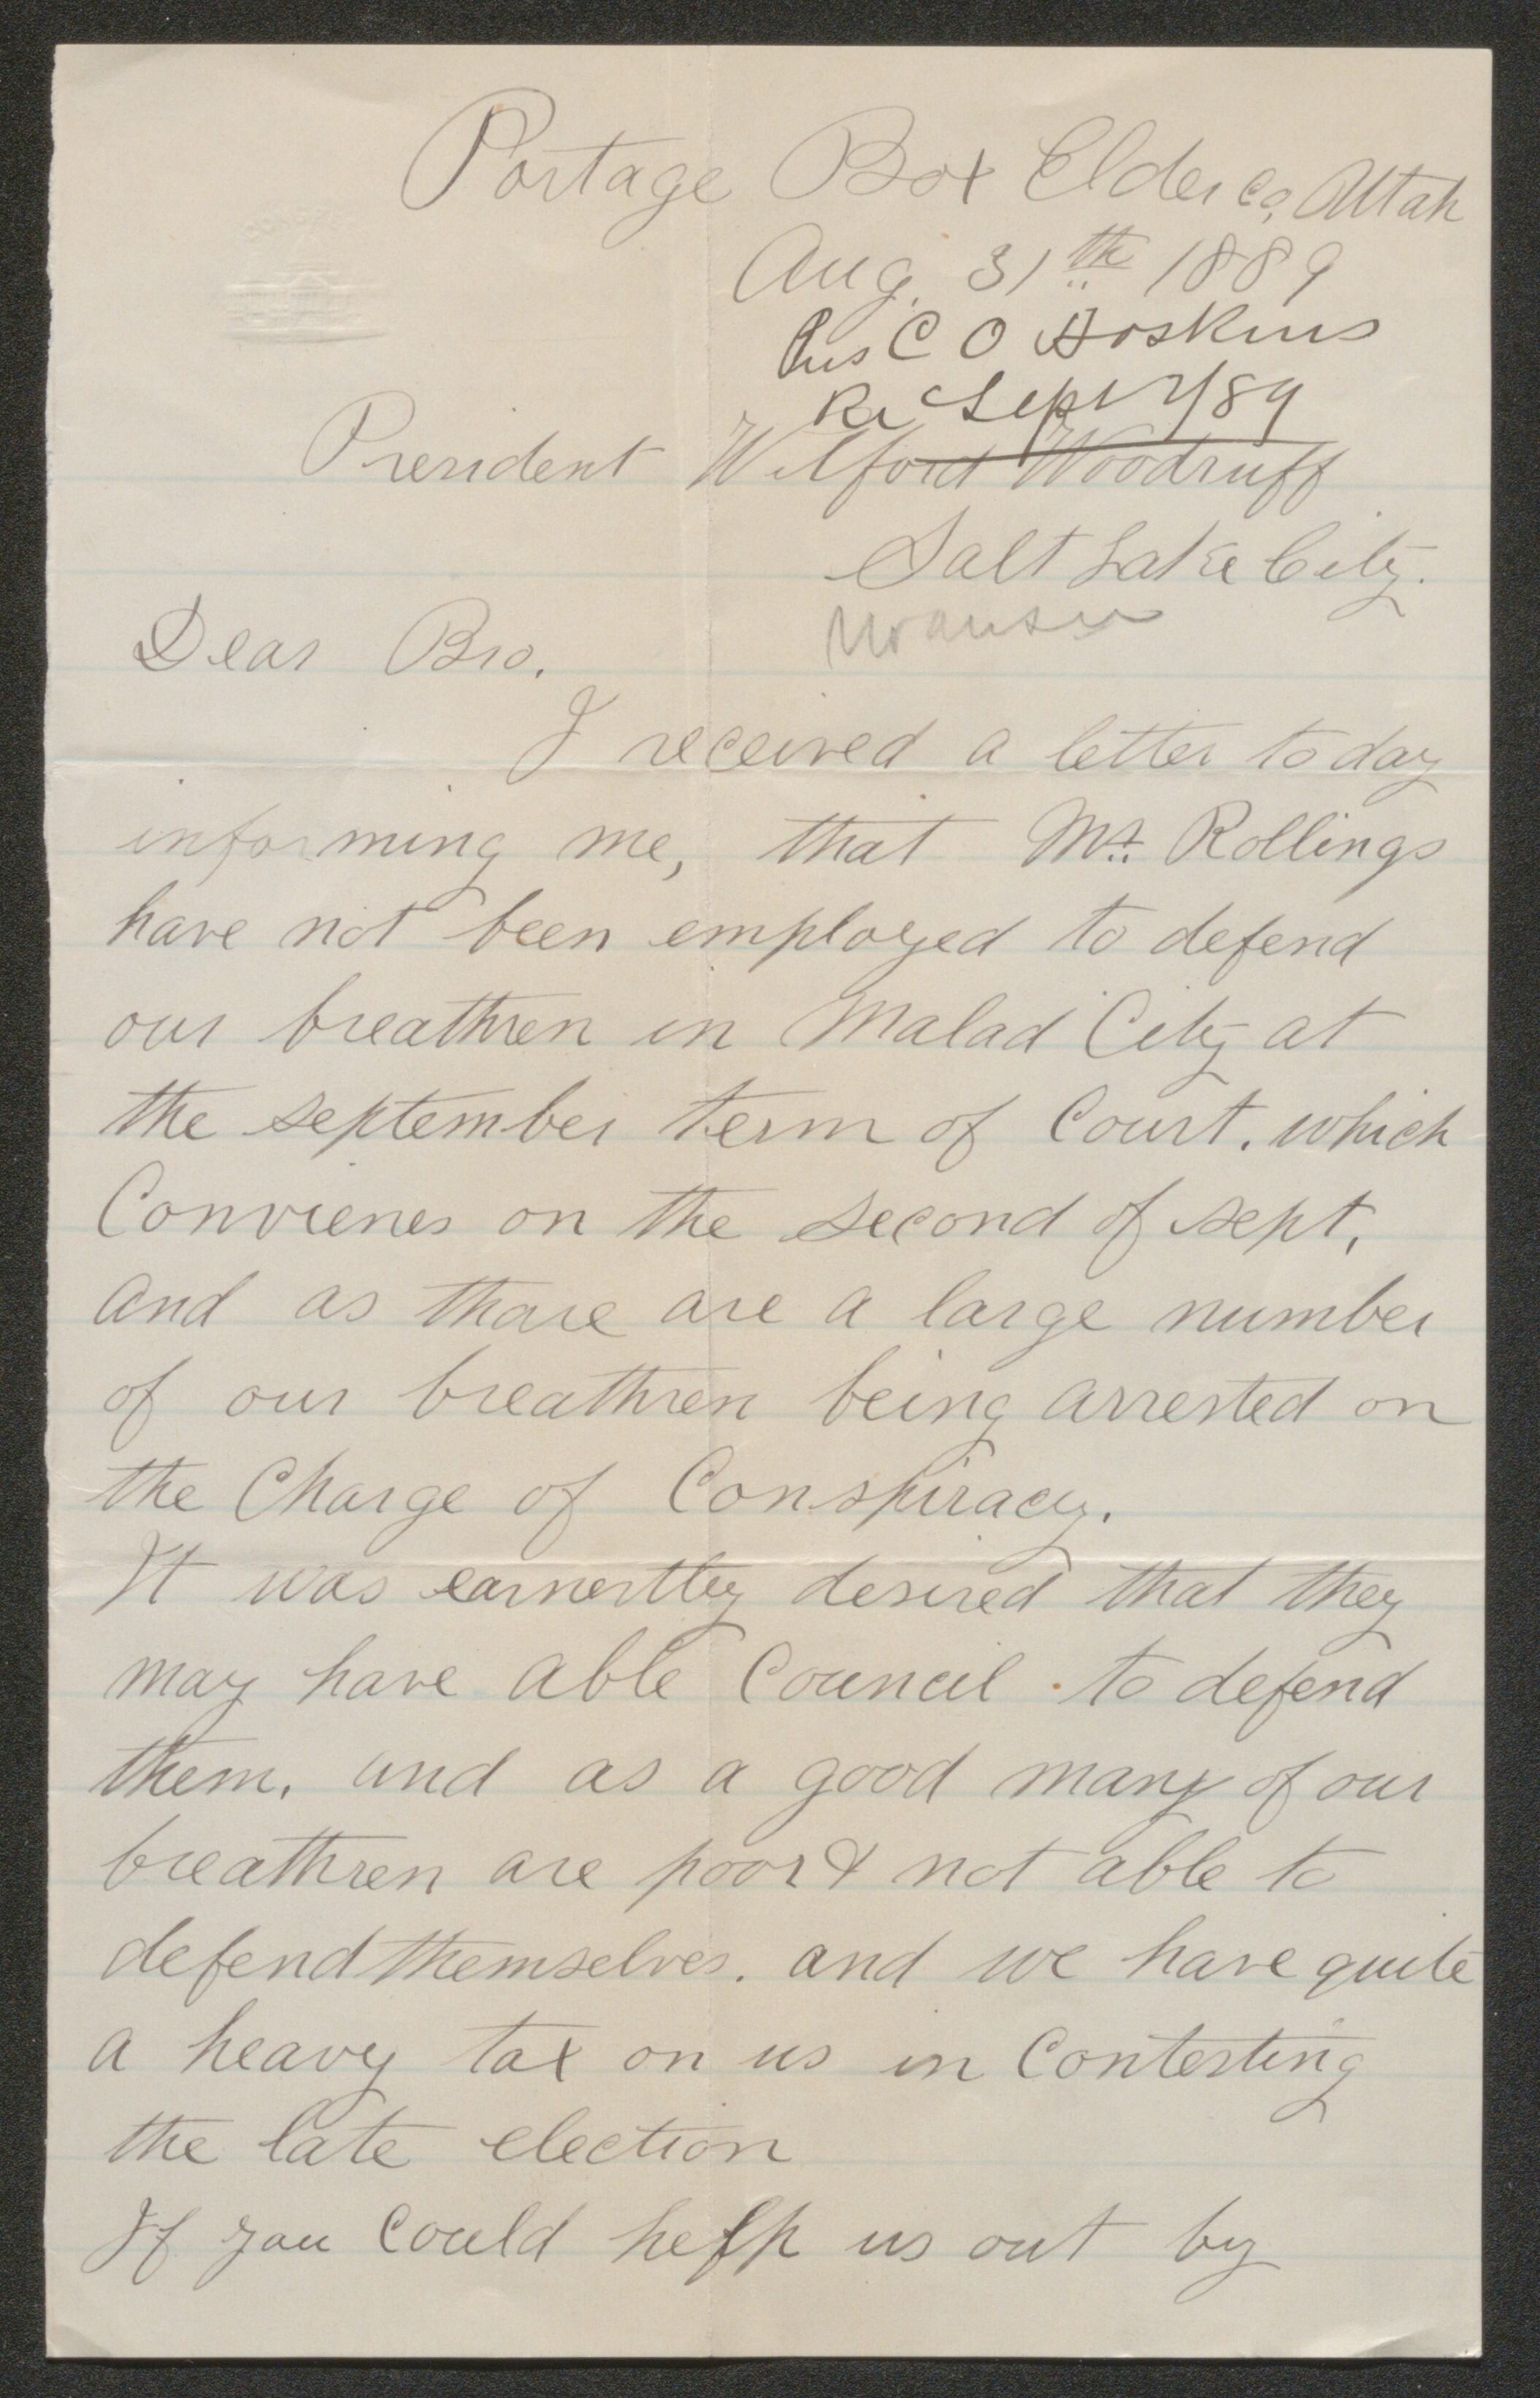 Portage Box Elder Co, Utah
Aug. 31th 1889
Pres C O Hoskins
Re Sept 2/89
President Wilford Woodruff
Salt Lake City.
Dear Bro.
I received a letter today
informing me, that Mr. Rollings
have not been employed to defend
our breathren in Malad City at
the september term of Court. which
Convienes on the second of sept,
and as thare are a large number
of our breathren being arrested on
the Charge of Conspiracy.
It was earnestley desired that they
may have able Council to defend
them. and as a good many of our
breathren are poor & not able to
defend themselves. and we have quite
a heavy tax on us in Contesting
the late election
If you Could help us out by